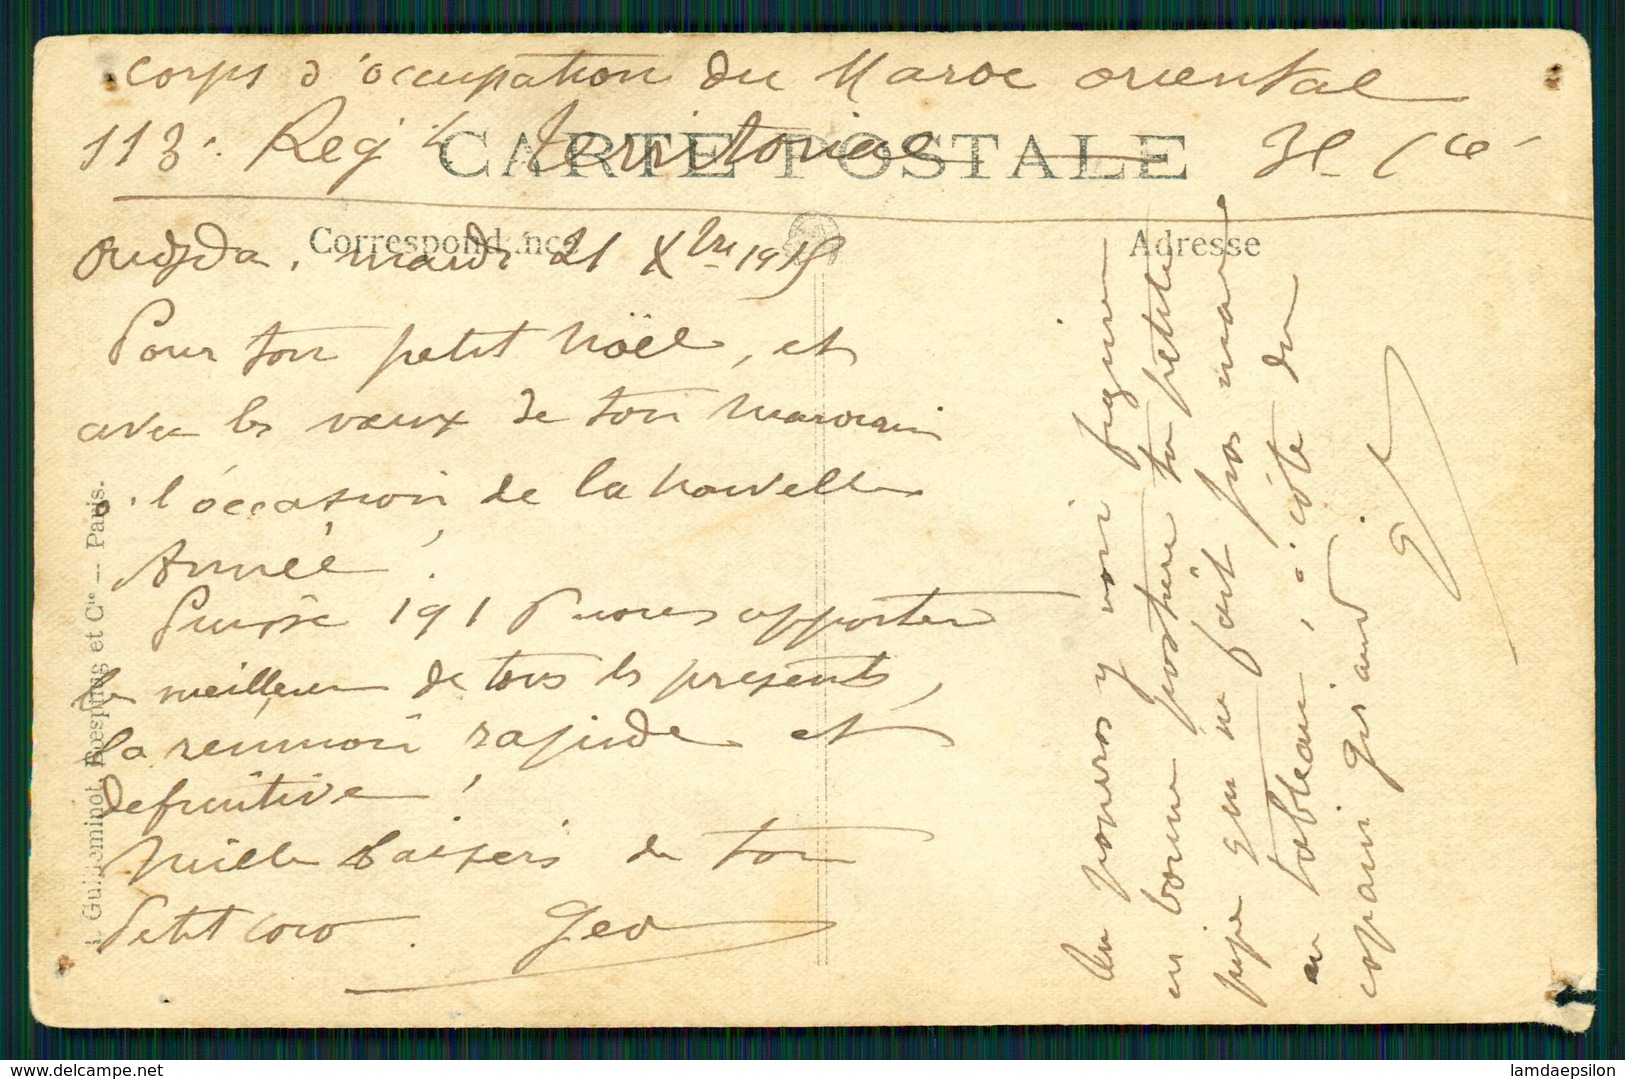 corps d'occupation du Maroc oriental
113e Regt Territorial 3e Cie
CARTE POSTALE
Correspondance
Adresse
Oudjda, mardi 21 Xbre 1915
Pour ton petit Nöel, et
avec les vœux de ton marocain
à l'occasion de la nouvelle
Année !
Puisse 1916 nous apporter
le meilleur de tous les présents,
la réunion rapide et
définitive !
Mille baisers de ton
Petit coco. Geo
Tu pourras y voir figurer
en bonne posture ta petite
pipe qui ne fait pas mal
au tableau, à côté du
copain qui
J. Guilleminot, Bœspflug et Cie — Paris.
www.delcampe.net
lamdaepsilon